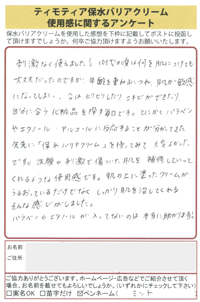 ティモティア保水バリアクリーム
使用感に関するアンケート
保水バリアクリームを使用した感想を下枠に記載してポストに投函し
て頂けますでしょうか。何卒ご協力頂けますようお願い致します。
刺激なく使えました！10代20代は何を肌につけても
大丈夫だったのですが、年齢を重ねるにつれ、肌が敏感
になってしまい、今はヒリヒリしたりニキビができたり
自分に合う化粧品を探す毎日です。とにかくパラベン
やエタノール・アルコールに反応することが分かってきた
次第に「保水バリアクリーム」を使ってみて、大丈夫だった
です。洗顔の刺激で傷ついた肌を補修していって
くれるような使用感です。肌の上に塗ったクリームが
うるおっているだけでなく しっかり肌を治してくれる
そんな感じがしました。
パラベンやエタノールが入ってないのは本当に助かります。
お名前
ご住所
ご協力ありがとうございます。ホームページ・広告などでご紹介させて頂く
場合、お名前を載せてもよろしいでしょうか。(いずれかにチェックして下さい)
□実名OK □苗字だけ ☑ペンネーム( ミント )